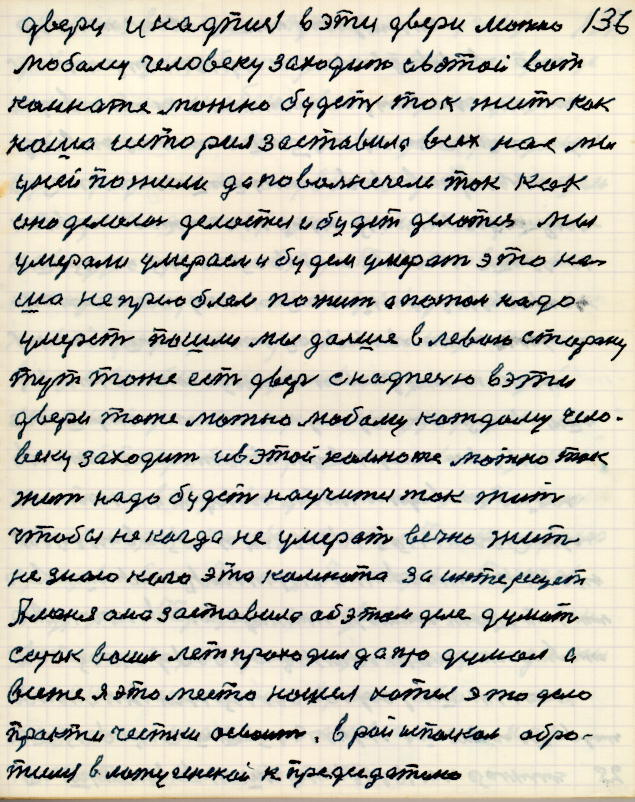 двери и надпис в эти двери можно 136
любому человеку заходит овэтой вот
комнате можно будет ток жит как
наша история заставила всех нас мы
уней пожили даповолнечели ток как
оно делолас делоетси и будет делотся мы
умерали умераем и будем умерат это на-
ша неприоблем пожит а потом надо
умерет пошли мы далше в левою сторону
тут тоже ест двер с надписю в эти
двери тоже можно любому каждому чело-
веку заходит ивэтой комноте можно ток
жит надо будет научится ток жит
чтобы некогда не умерат вечно жит
не знаю кого это комната заинтересует
Аменя она заставила обэтом деле думат
сорок восем летпроходил дапро думал а
всеже я это место нашел хотя это дело
практически освоит. в рай исполком обро-
тился в лотушинской к председателю